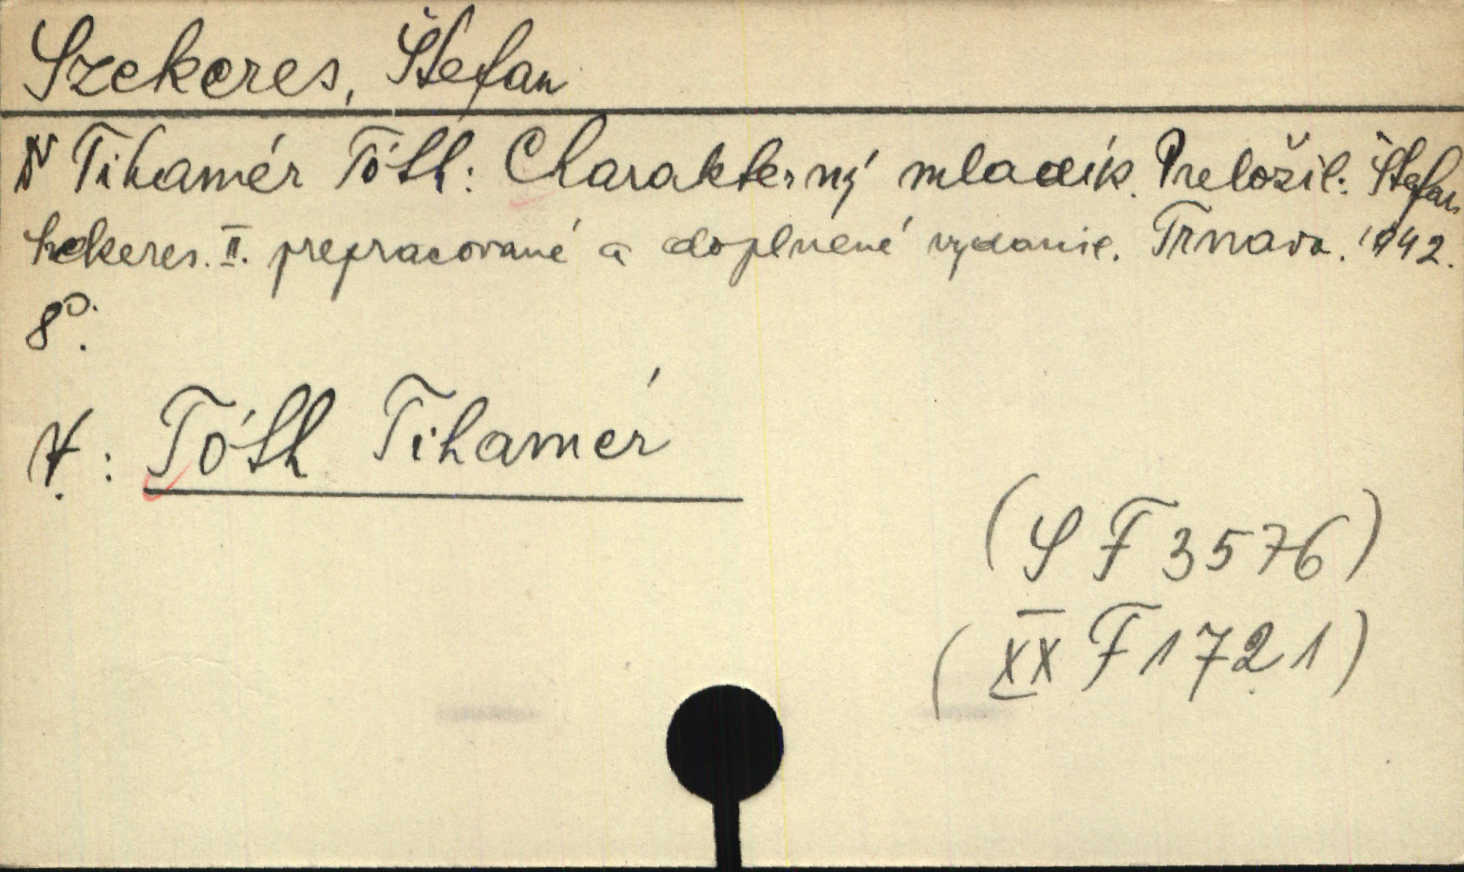 Szekeres, Štefan
Dr Tihamér Tóth: Charakterný mladík. Preložil: Štefan
Szekeres. II. prepracované a doplnené vydanie. Trnava. 1942.
8°.
V.: Tóth Tihamér
(S F 3576)
(XX F 1721)